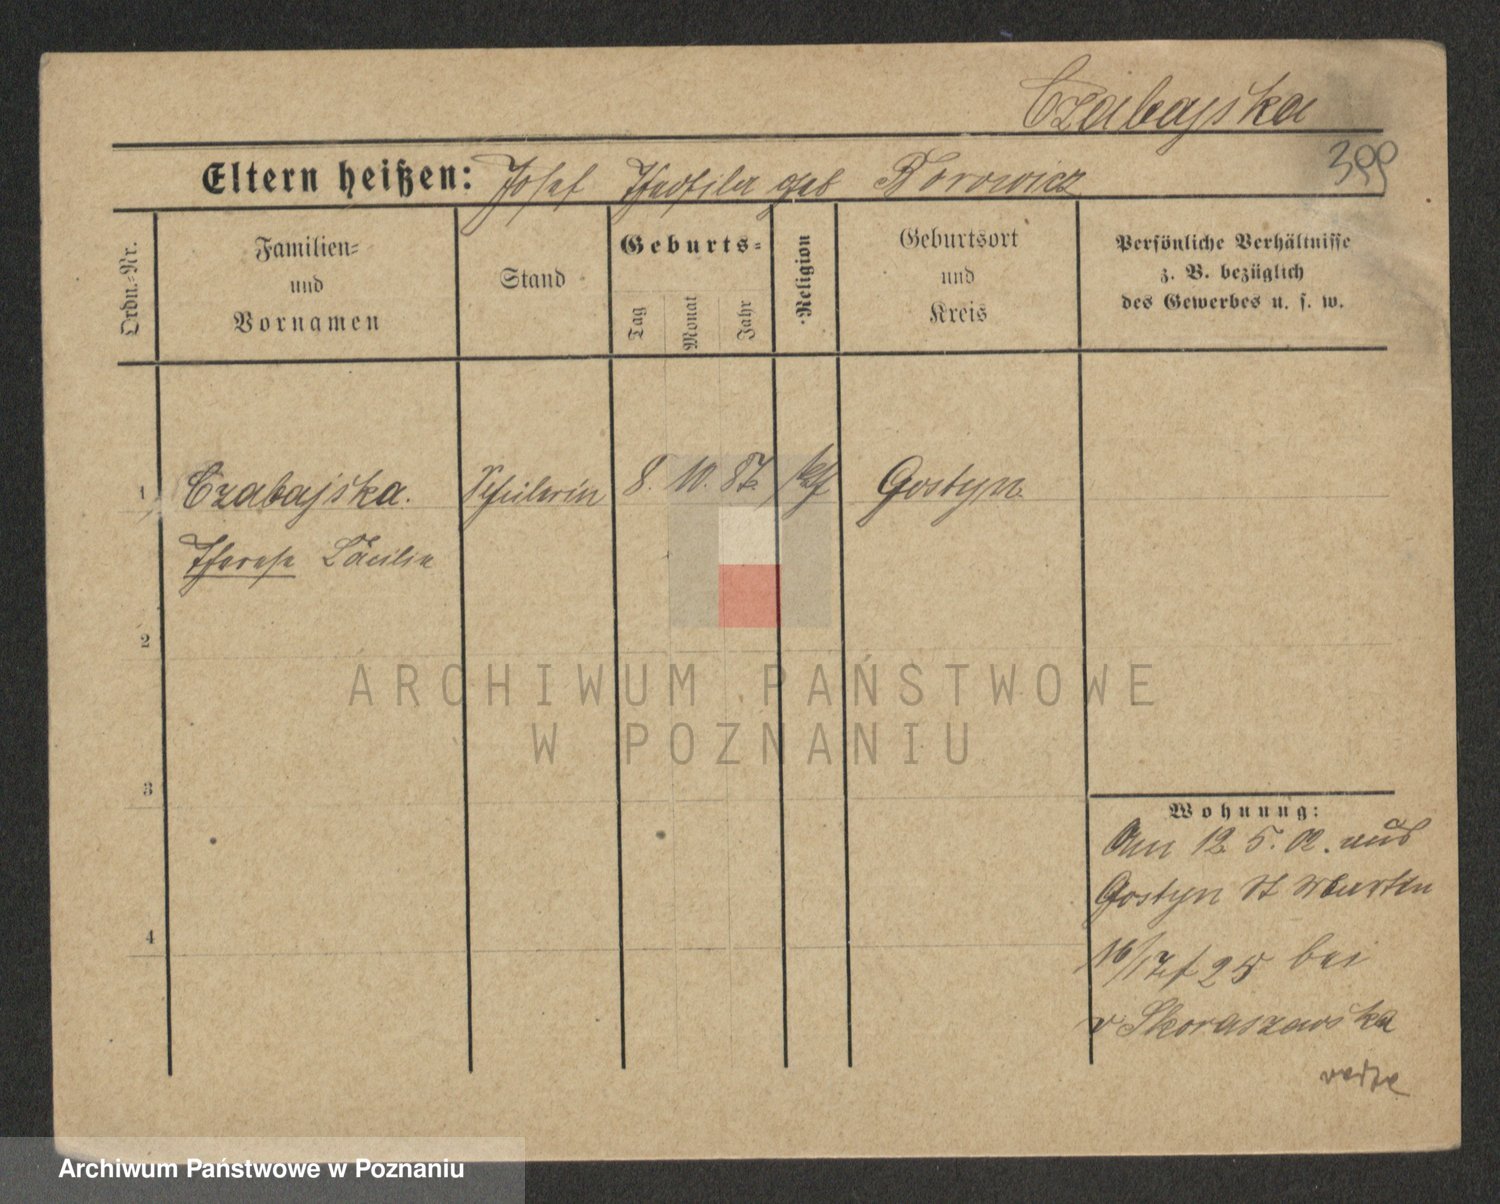 Czabajska
399
Eltern heißen: Josef Theofila geb Borowicz
Ordn.-Nr.
Familien-
und
Vornamen
Stand
Geburts-
Tag
Monat
Jahr
Religion
Geburtsort
und
Kreis
Persönliche Verhältnisse
z. B. bezüglich
des Gewerbes u. s. w.
1 Czabajska. Schülerin 8. 10. 87. kth Gostyn
Therese Cäcilie
2
ARCHIWUM PAŃSTWOWE
W POZNANIU
3
4
Wohnung:
Am 12 5. 02. aus
Gostyn St Martin
16/17 25 bei
v Skoraszewska
Archiwum Państwowe w Poznaniu